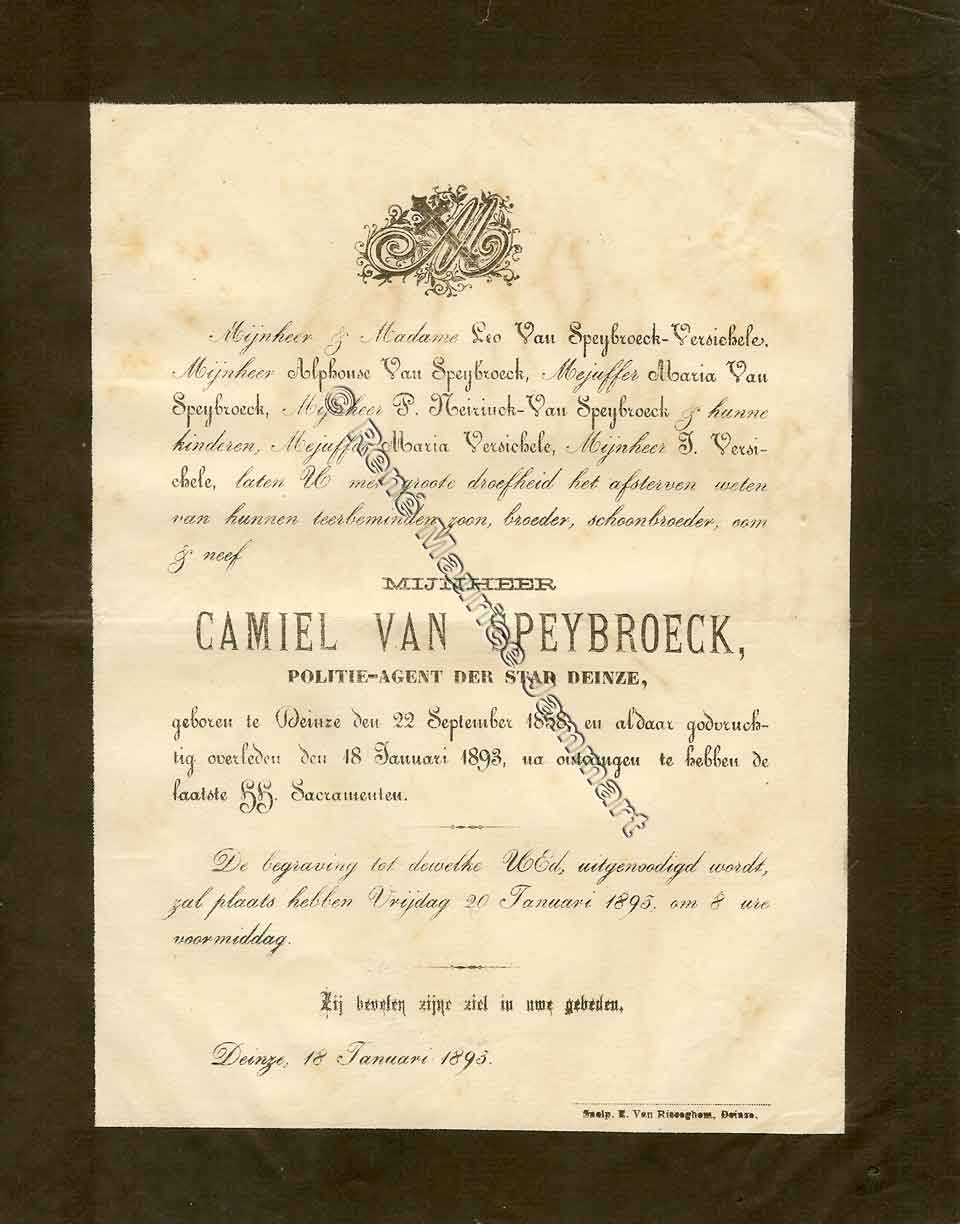 M
Mijnheer & Madame Leo Van Speybroeck-Versichele,
Mijnheer Alphonse Van Speybroeck, Mejuffer Maria Van
Speybroeck, Mijnheer P. Neirinck-Van Speybroeck & hunne
kinderen, Mejuffer Maria Versichele, Mijnheer J. Versi-
chele, laten U met groote droefheid het afsterven weten
van hunnen teerbeminden zoon, broeder, schoonbroeder, oom
& neef
MIJNHEER
CAMIEL VAN SPEYBROECK,
POLITIE-AGENT DER STAD DEINZE,
geboren te Deinze den 22 September 1858 en aldaar godvruch-
tig overleden den 18 Januari 1893, na ontvangen te hebben de
laatste HH. Sacramenten.
De begraving tot dewelke UEd, uitgenoodigd wordt,
zal plaats hebben Vrijdag 20 Januari 1893. om 8 ure
voormiddag.
Zij bevelen zijne ziel in uwe gebeden.
Deinze, 18 Januari 1893.
Snelp. E. Van Risseghem, Deinze.
© René Maurice Jammart